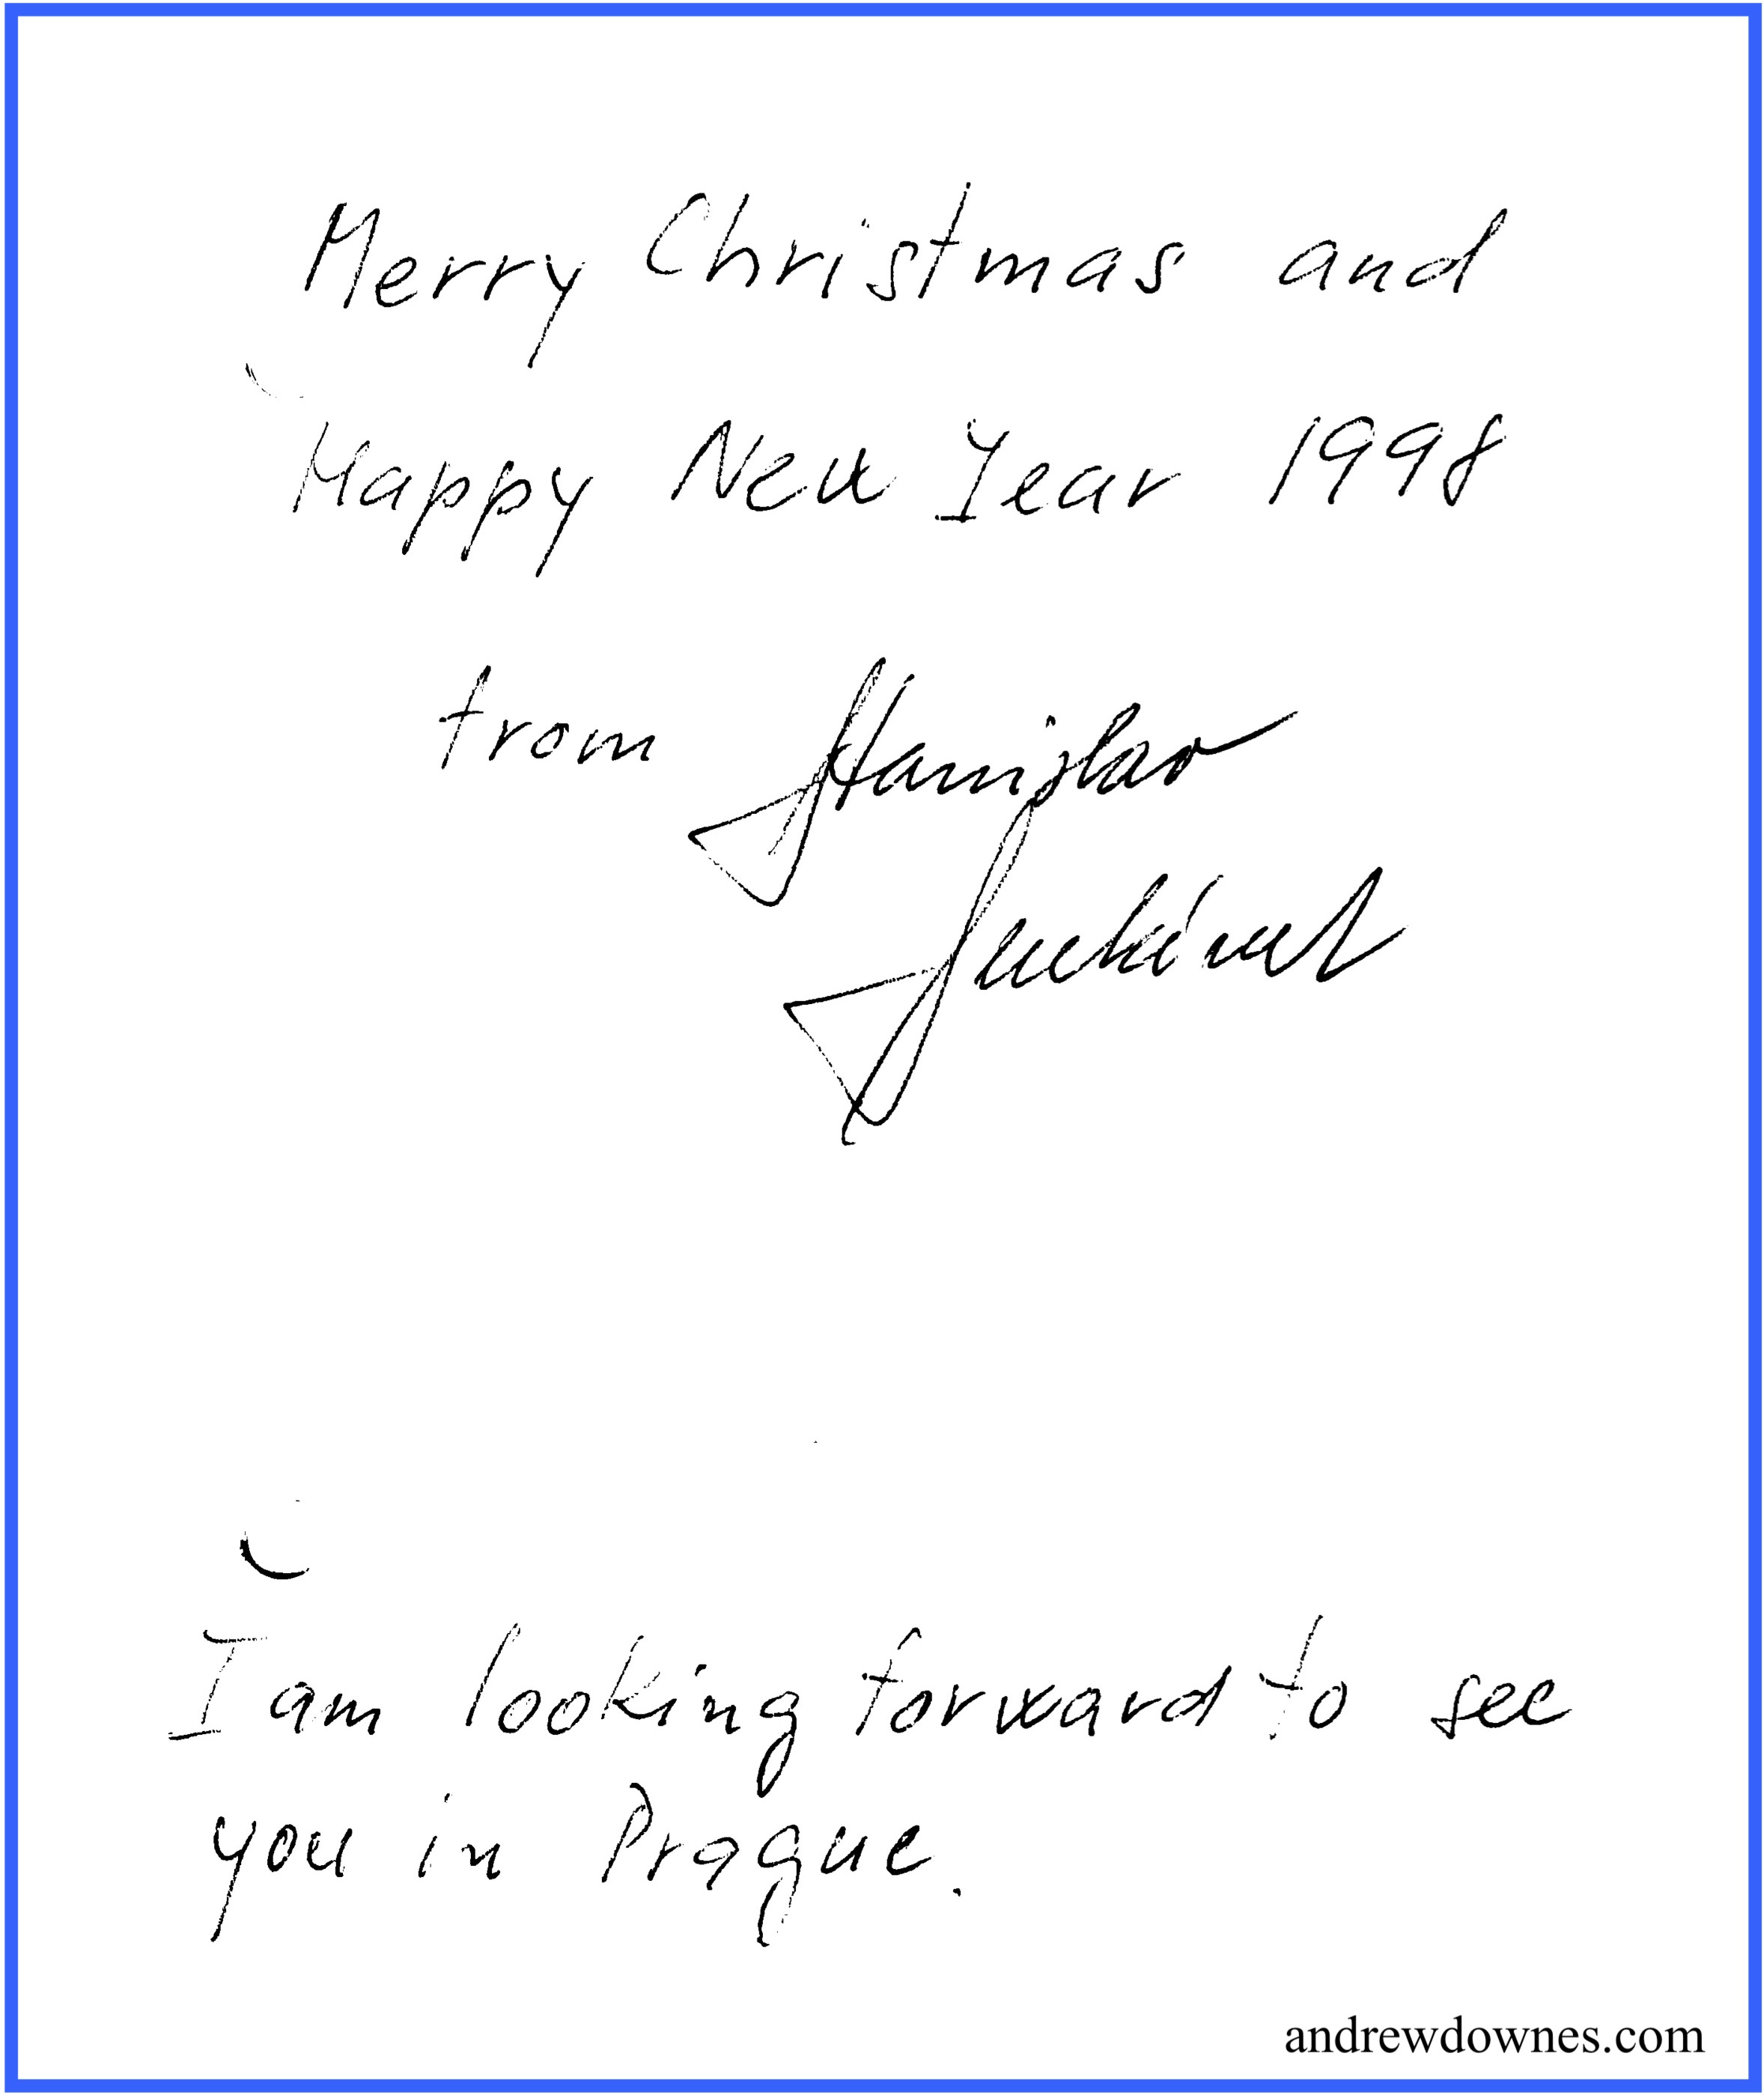 Merry Christmas and
Happy New Year 1998
from Stanislav
Suchánek
I am looking forward to see
you in Prague.
andrewdownes.com